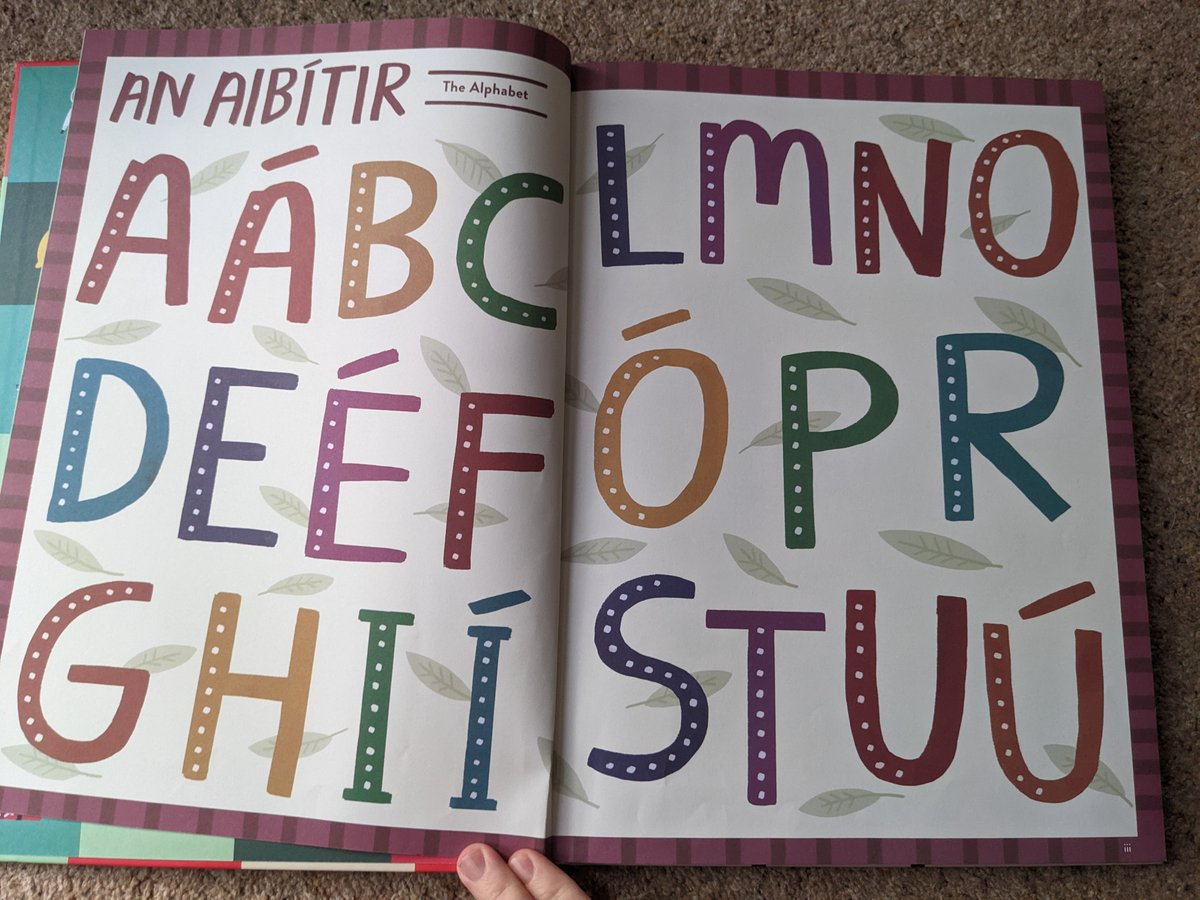 AN AIBÍTIR
The Alphabet
A Á B C
D E É F
G H I Í
L M N O
Ó P R
S T U Ú
iii